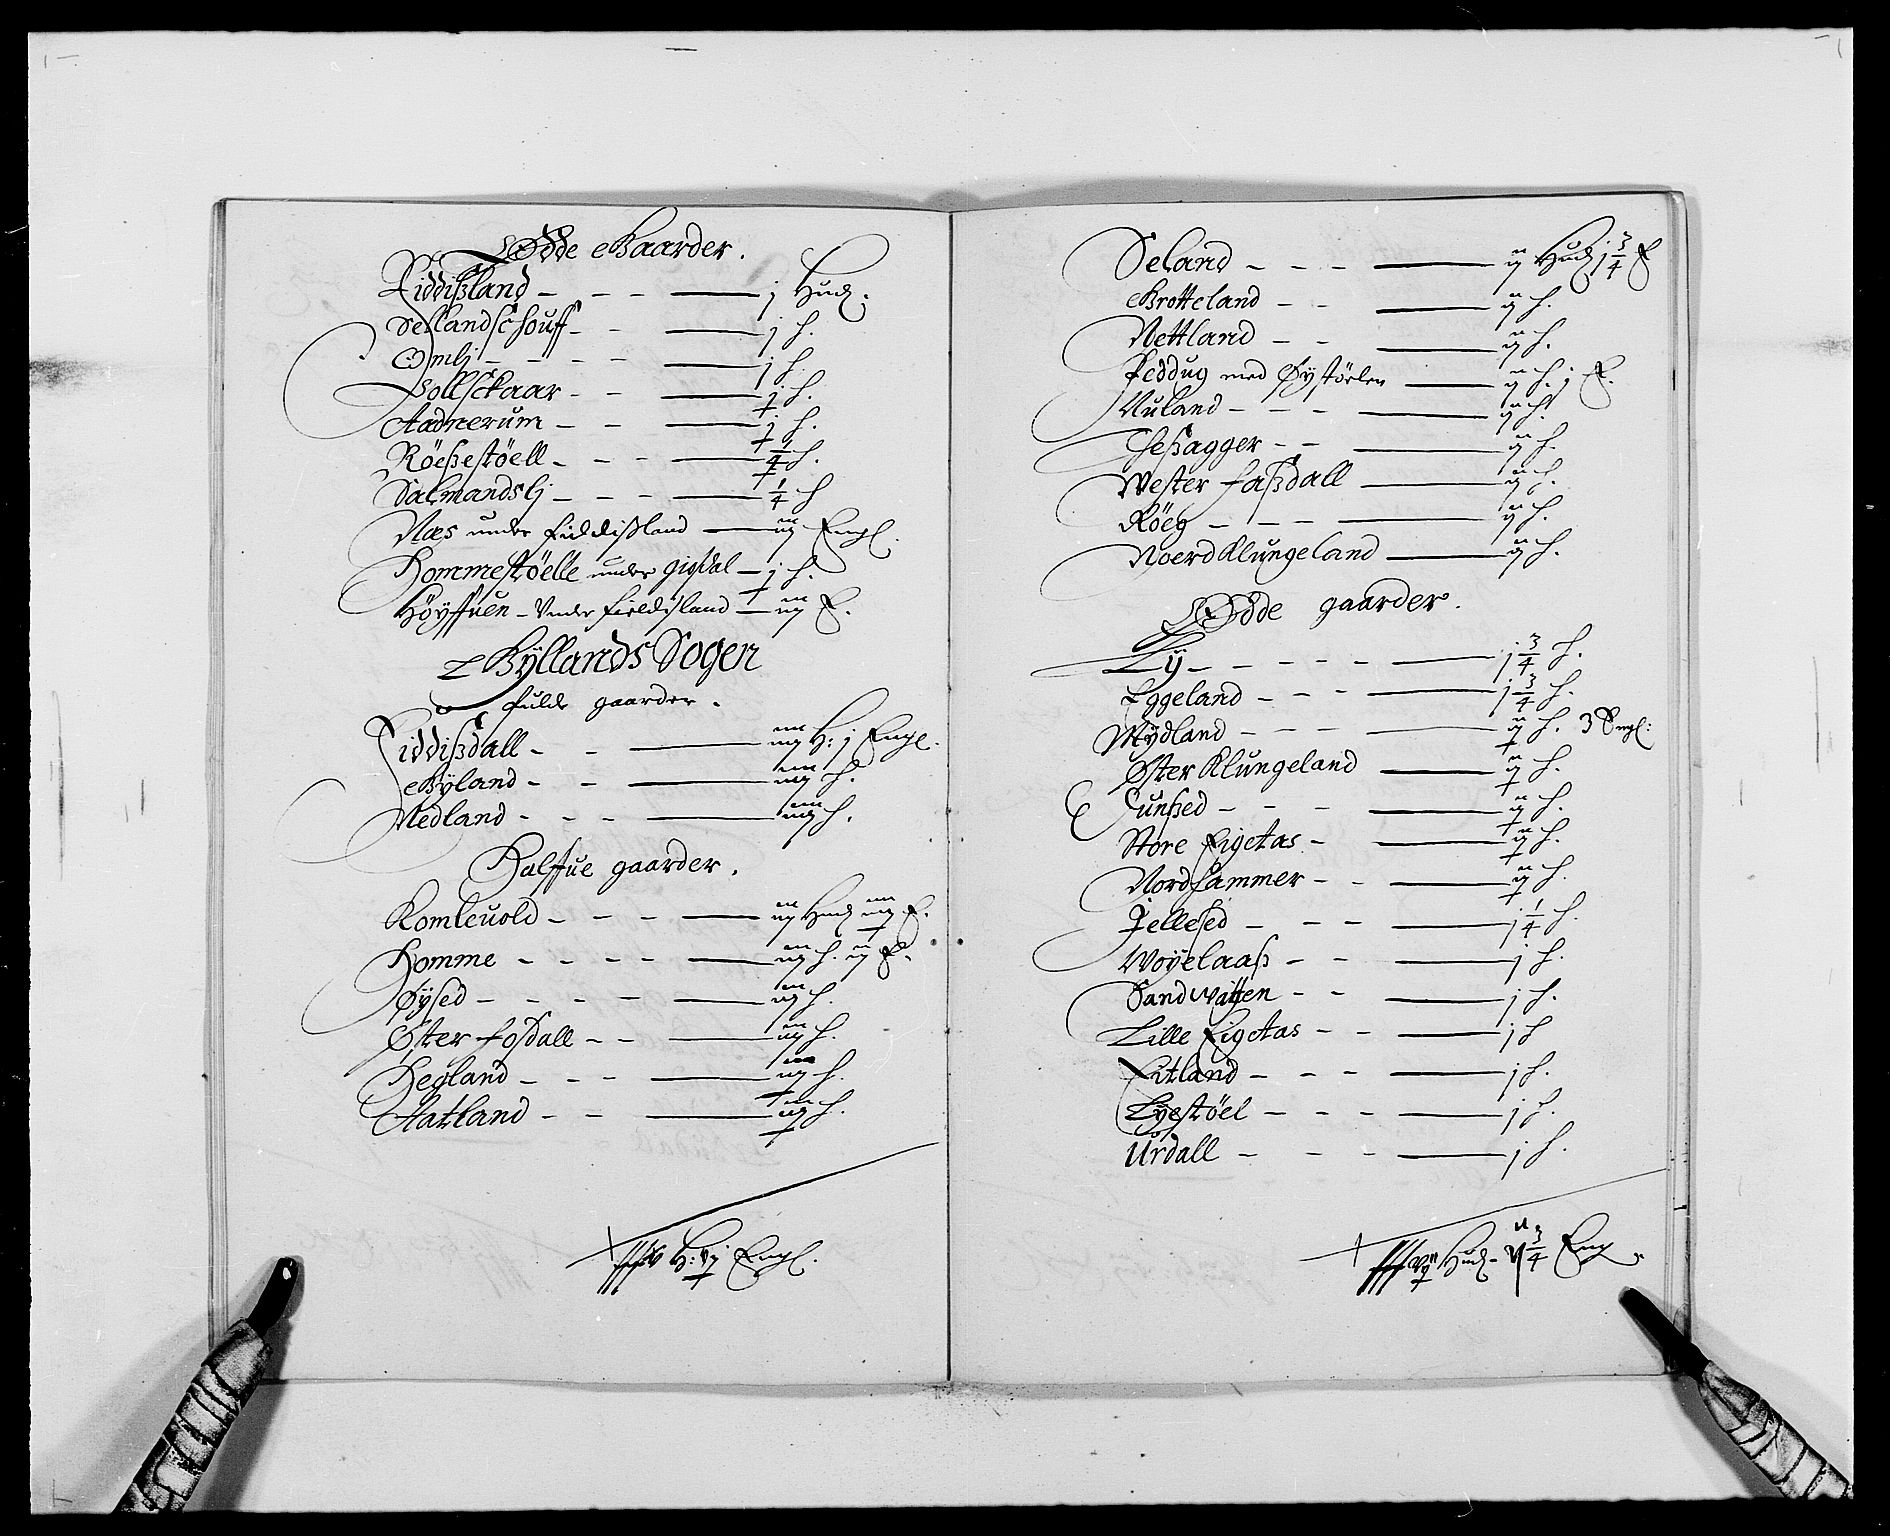 Øde Gaarder.
Fiddißland - - - j Hud:
Sellandschouff - - j h.
Omlj - - - - j h.
Sollsckaar - - j h.
Aadnerum - - j h.
Röeßestöell - - - ¼ h.
Salmandslj - - - ¼ h
Næs under Fiddißland - iij Engl.
Hommestöelle under gisdal - j h.
Höyffuen - Under Fieldisland - iij E.
Byllands Sogen
fulde gaarder.
Fiddißdall - - iiij H: j Engl.
Byland - - iiij h.
Medland - - - iiij h.
Halffue gaarder.
Romleuold - - - iij Hud iij E.
Homme - - - - iij h. ij E.
Øysed - - - - iij h.
Øster fosdall - - iij h.
Hegland - - - iij h.
Aatland - - iij h.
H: Engl.
Seland - - - ij Hud j ¾ E
Brotteland - - ij h.
Nettland - - ij h.
Feddug med Øystöelen ij h. j E.
Nuland - - - ij h.
Heßagger - - ij h.
Wester faßdall ij h.
Röeg - - - ij h.
Noerd Klungeland ij h.
Øde gaarder.
Ly - - - - - j ¾ h.
Eggeland - - - j ¾ h.
Mydland - - - - ij h. 3 Engl:
Øster Klungeland ij h.
Sunßed - - - ij h.
Store Eigetas - ij h.
Nordhammer - - ij h.
Jellesed - - - j ¼ h.
Woyelaaß - - j h.
Sandwatten - - j h.
Lille Eigetas - - j h
Eitland - - - j h.
Lyestöel - - - j h.
Urdall - - - j h.
Hud - ¾ Eng